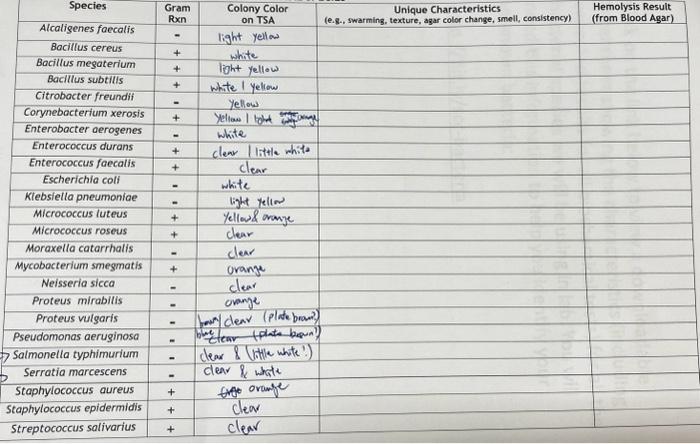 Species Gram Rxn Colony Color on TSA Unique Characteristics (e.g., swarming, texture, agar color change, smell, consistency) Hemolysis Result (from Blood Agar)
Alcaligenes faecalis - light yellow
Bacillus cereus + white
Bacillus megaterium + light yellow
Bacillus subtilis + white | yellow
Citrobacter freundii - yellow
Corynebacterium xerosis + Yellow | light orange
Enterobacter aerogenes - white
Enterococcus durans + clear | little white
Enterococcus faecalis + clear
Escherichia coli - white
Klebsiella pneumoniae - light yellow
Micrococcus luteus + Yellow & orange
Micrococcus roseus + clear
Moraxella catarrhalis - clear
Mycobacterium smegmatis + orange
Neisseria sicca - clear
Proteus mirabilis - orange
Proteus vulgaris - brown/clear (plate brown?)
Pseudomonas aeruginosa - blue clear (plate brown!)
Salmonella typhimurium - clear & (little white!)
Serratia marcescens - clear & white
Staphylococcus aureus + orange
Staphylococcus epidermidis + clear
Streptococcus salivarius + clear